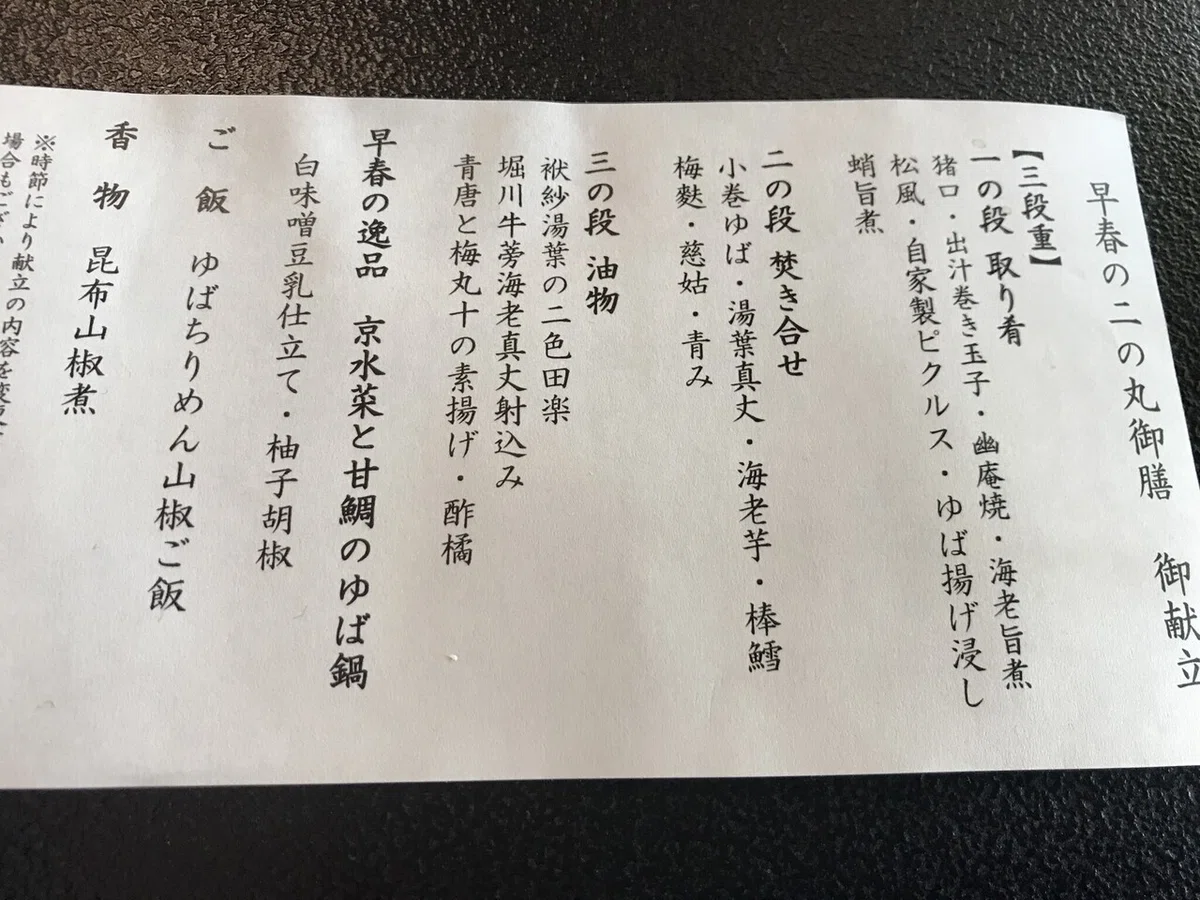 早春の二の丸御膳　御献立
【三段重】
一の段 取り肴
猪口・出汁巻き玉子・幽庵焼・海老旨煮
松風・自家製ピクルス・ゆば揚げ浸し
蛸旨煮
二の段 焚き合せ
小巻ゆば・湯葉真丈・海老芋・棒鱈
梅麩・慈姑・青み
三の段 油物
袱紗湯葉の二色田楽
堀川牛蒡海老真丈射込み
青唐と梅丸十の素揚げ・酢橘
早春の逸品　京水菜と甘鯛のゆば鍋
白味噌豆乳仕立て・柚子胡椒
ご飯　ゆばちりめん山椒ご飯
香物　昆布山椒煮
※時節により献立の内容を変更
場合もござい